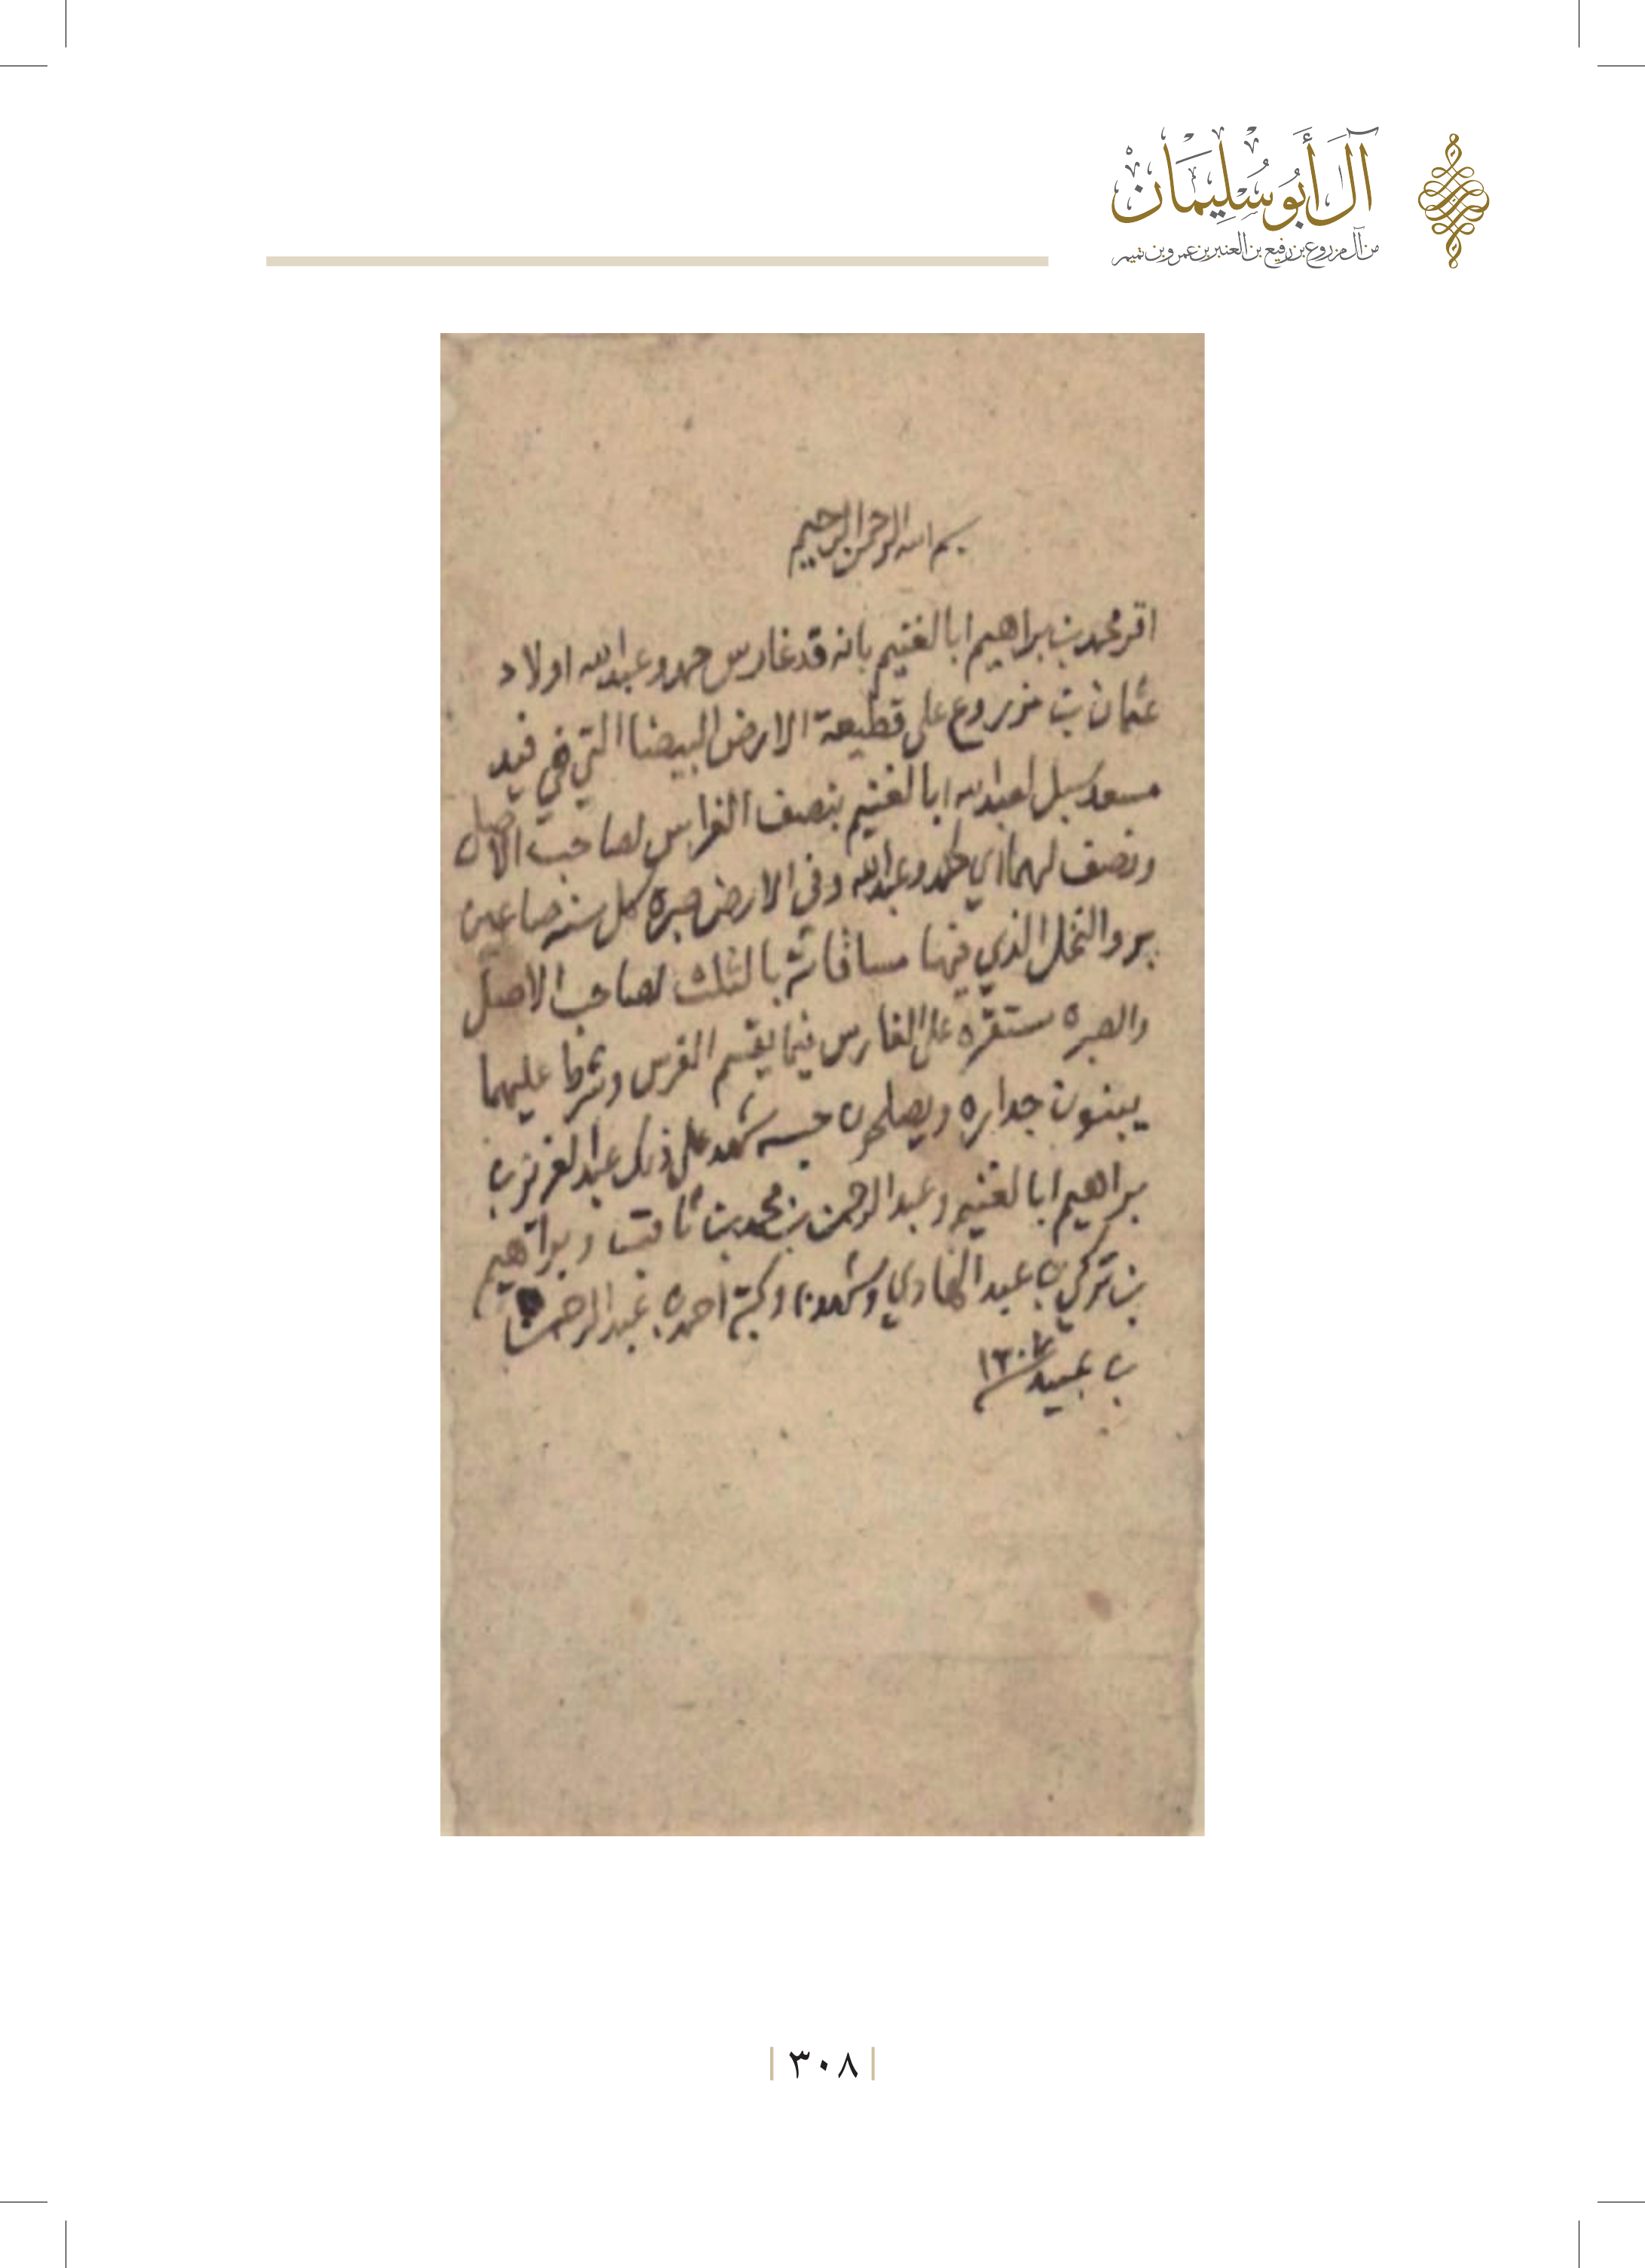 آل أَبُو سُلَيْمَان
من آل مزروع بن رفيع بن العنبر بن عمرو بن تميم
بسم الله الرحمن الرحيم
اقر محمد بن براهيم ابا لغنيم بانه قد غارس حمد وعبدالله اولاد
عثمان بن مزروع على قطيعة الارض البيضا التي في فيد
مسعد سبل لعبدالله ابا لغنيم بنصف الغراس لصاحب الاصل
ونصف لهما اي حمد وعبدالله وفي الارض صبرة كل سنه صاعين
بر والنخل الذي فيها مساقاة بالثلث لصاحب الاصل
والصبره ستقره على الغارس فيما يقسم الغرس وشرط عليهما
يبنون جداره ويصلحون شهد على ذلك عبدالعزيز بن
براهيم ابا لغنيم وعبدالرحمن بن محمد بن ثاقب وبراهيم
بن تركي بن عبدالهادي وشهد به وكتبه احمد بن عبدالرحمن
بن عبيد ١٣٠٢
٣٠٨